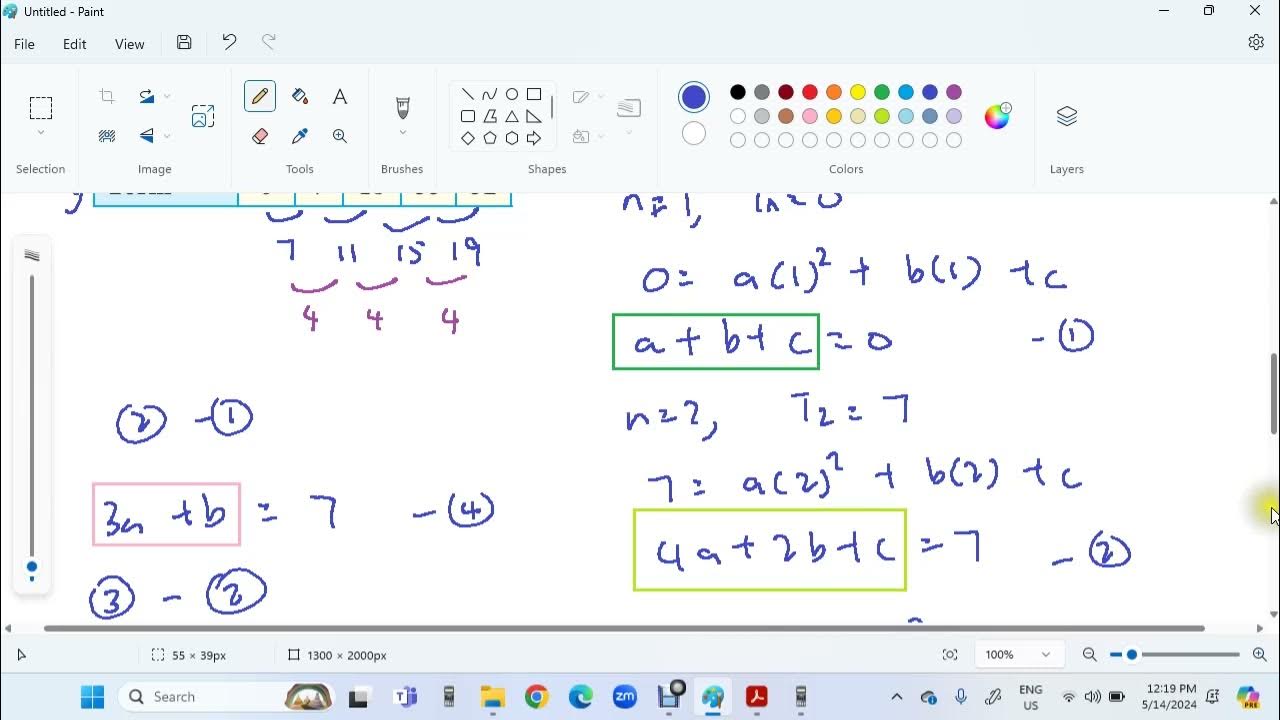 Untitled - Paint
File Edit View
Selection Image Tools Brushes Shapes Colors Layers
n=1,
7 11 15 19
0= a(1)² + b(1) +c
4 4 4
a + b + c = 0 - ①
② - ①
n=2, T₂ = 7
7 = a(2)² + b(2) + c
3a + b = 7 - ④
4a + 2b + c = 7 - ②
③ - ②
55 × 39px 1300 × 2000px 100%
Search
ENG
US
12:19 PM
5/14/2024
zm
PRE